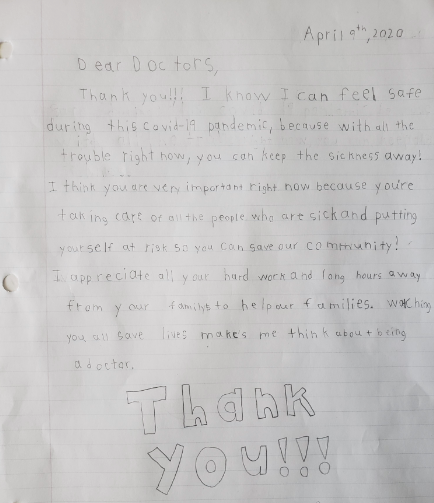 April 9th, 2020
Dear Doctors,
Thank you!!! I know I can feel safe
during this covid-19 pandemic, because with all the
trouble right now, you can keep the sickness away!
I think you are very important right now because you're
taking care of all the people who are sick and putting
yourself at risk so you can save our community!
I appreciate all your hard work and long hours away
from your familys to help our families. watching
you all save lives makes me think about being
a doctor.
Thank
you!!!